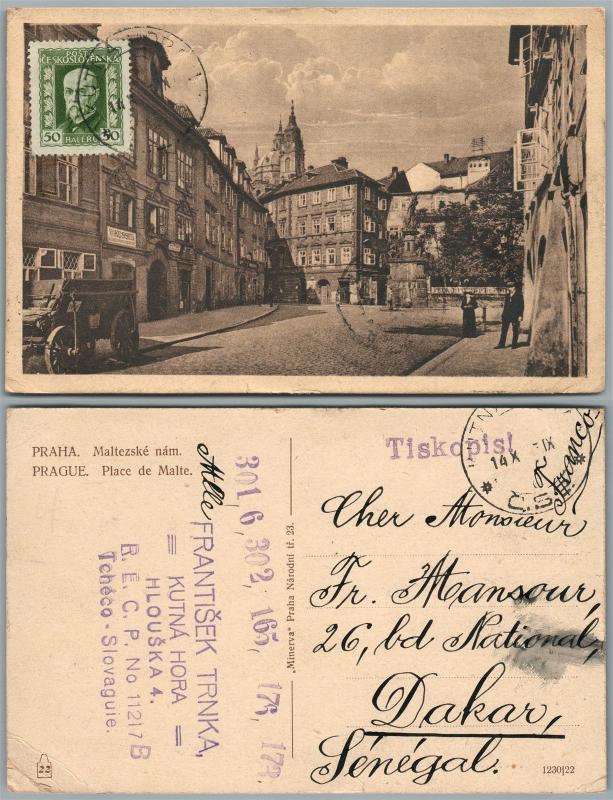 POŠTA
ČESKOSLOVENSKÁ
50 HALÉŘŮ 50
PRAHA. Maltezské nám.
PRAGUE. Place de Malte.
Tiskopis!
14 X
IX
Č.S.
Franco
Cher Monsieur
Fr. Mansour,
26, bd National,
Dakar,
Sénégal.
301, 6, 302, 165, 176, 173
FRANTIŠEK TRNKA,
= KUTNÁ HORA =
HLOUŠKA 4.
B. E. C. P. No 11217 B
Tchéco-Slovaquie.
„Minerva" Praha Národní tř. 23.
22
1230|22